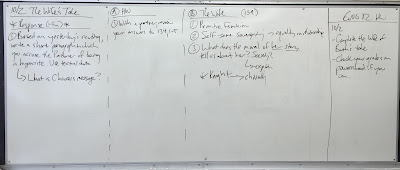 10/2 The Wife's Tale
* Response (
① Based on yesterday's reading,
write a short paragraph in which
you accuse the Pardoner of being
a hypocrite. Use textual data
↳ What is Chaucer's message?
Ⓐ HW
① With a partner,
your answer to
Ⓑ The Wife (
① Primitive Feminism
② Self-same sovereignty → equality in relationship
③ What does the moral of her story
tell us about her? Society?
* Knight → chivalry
ENG 12
10/2
- Complete the Wife of
Bath's tale
- Check your grades on
powerschool if you
can